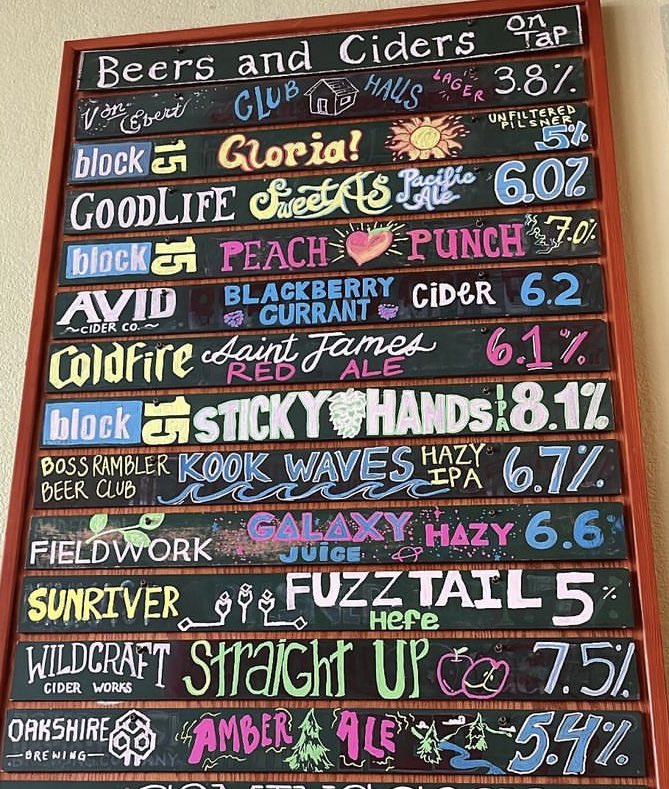 Beers and Ciders On Tap
Von Ebert CLUB HAUS LAGER 3.8%
block 15 Gloria! UNFILTERED PILSNER 5%
GOODLIFE Sweet As Pacific Ale 6.0%
block 15 PEACH PUNCH 7.0%
AVID CIDER CO. BLACKBERRY CURRANT CiDER 6.2
COLDFIRE Saint James RED ALE 6.1%
block 15 STICKY HANDS IPA 8.1%
BOSS RAMBLER BEER CLUB KOOK WAVES HAZY IPA 6.7%
FIELDWORK GALAXY JUICE HAZY 6.6
SUNRIVER FUZZTAIL Hefe 5%
WILDCRAFT CIDER WORKS Straight UP 7.5%
OAKSHIRE BREWING AMBER ALE 5.4%